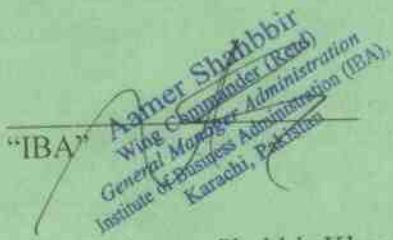 Aamer Shahbbir
Wing Commander (Retd)
General Manager Administration
Institute of Business Administration (IBA),
Karachi, Pakistan
"IBA"